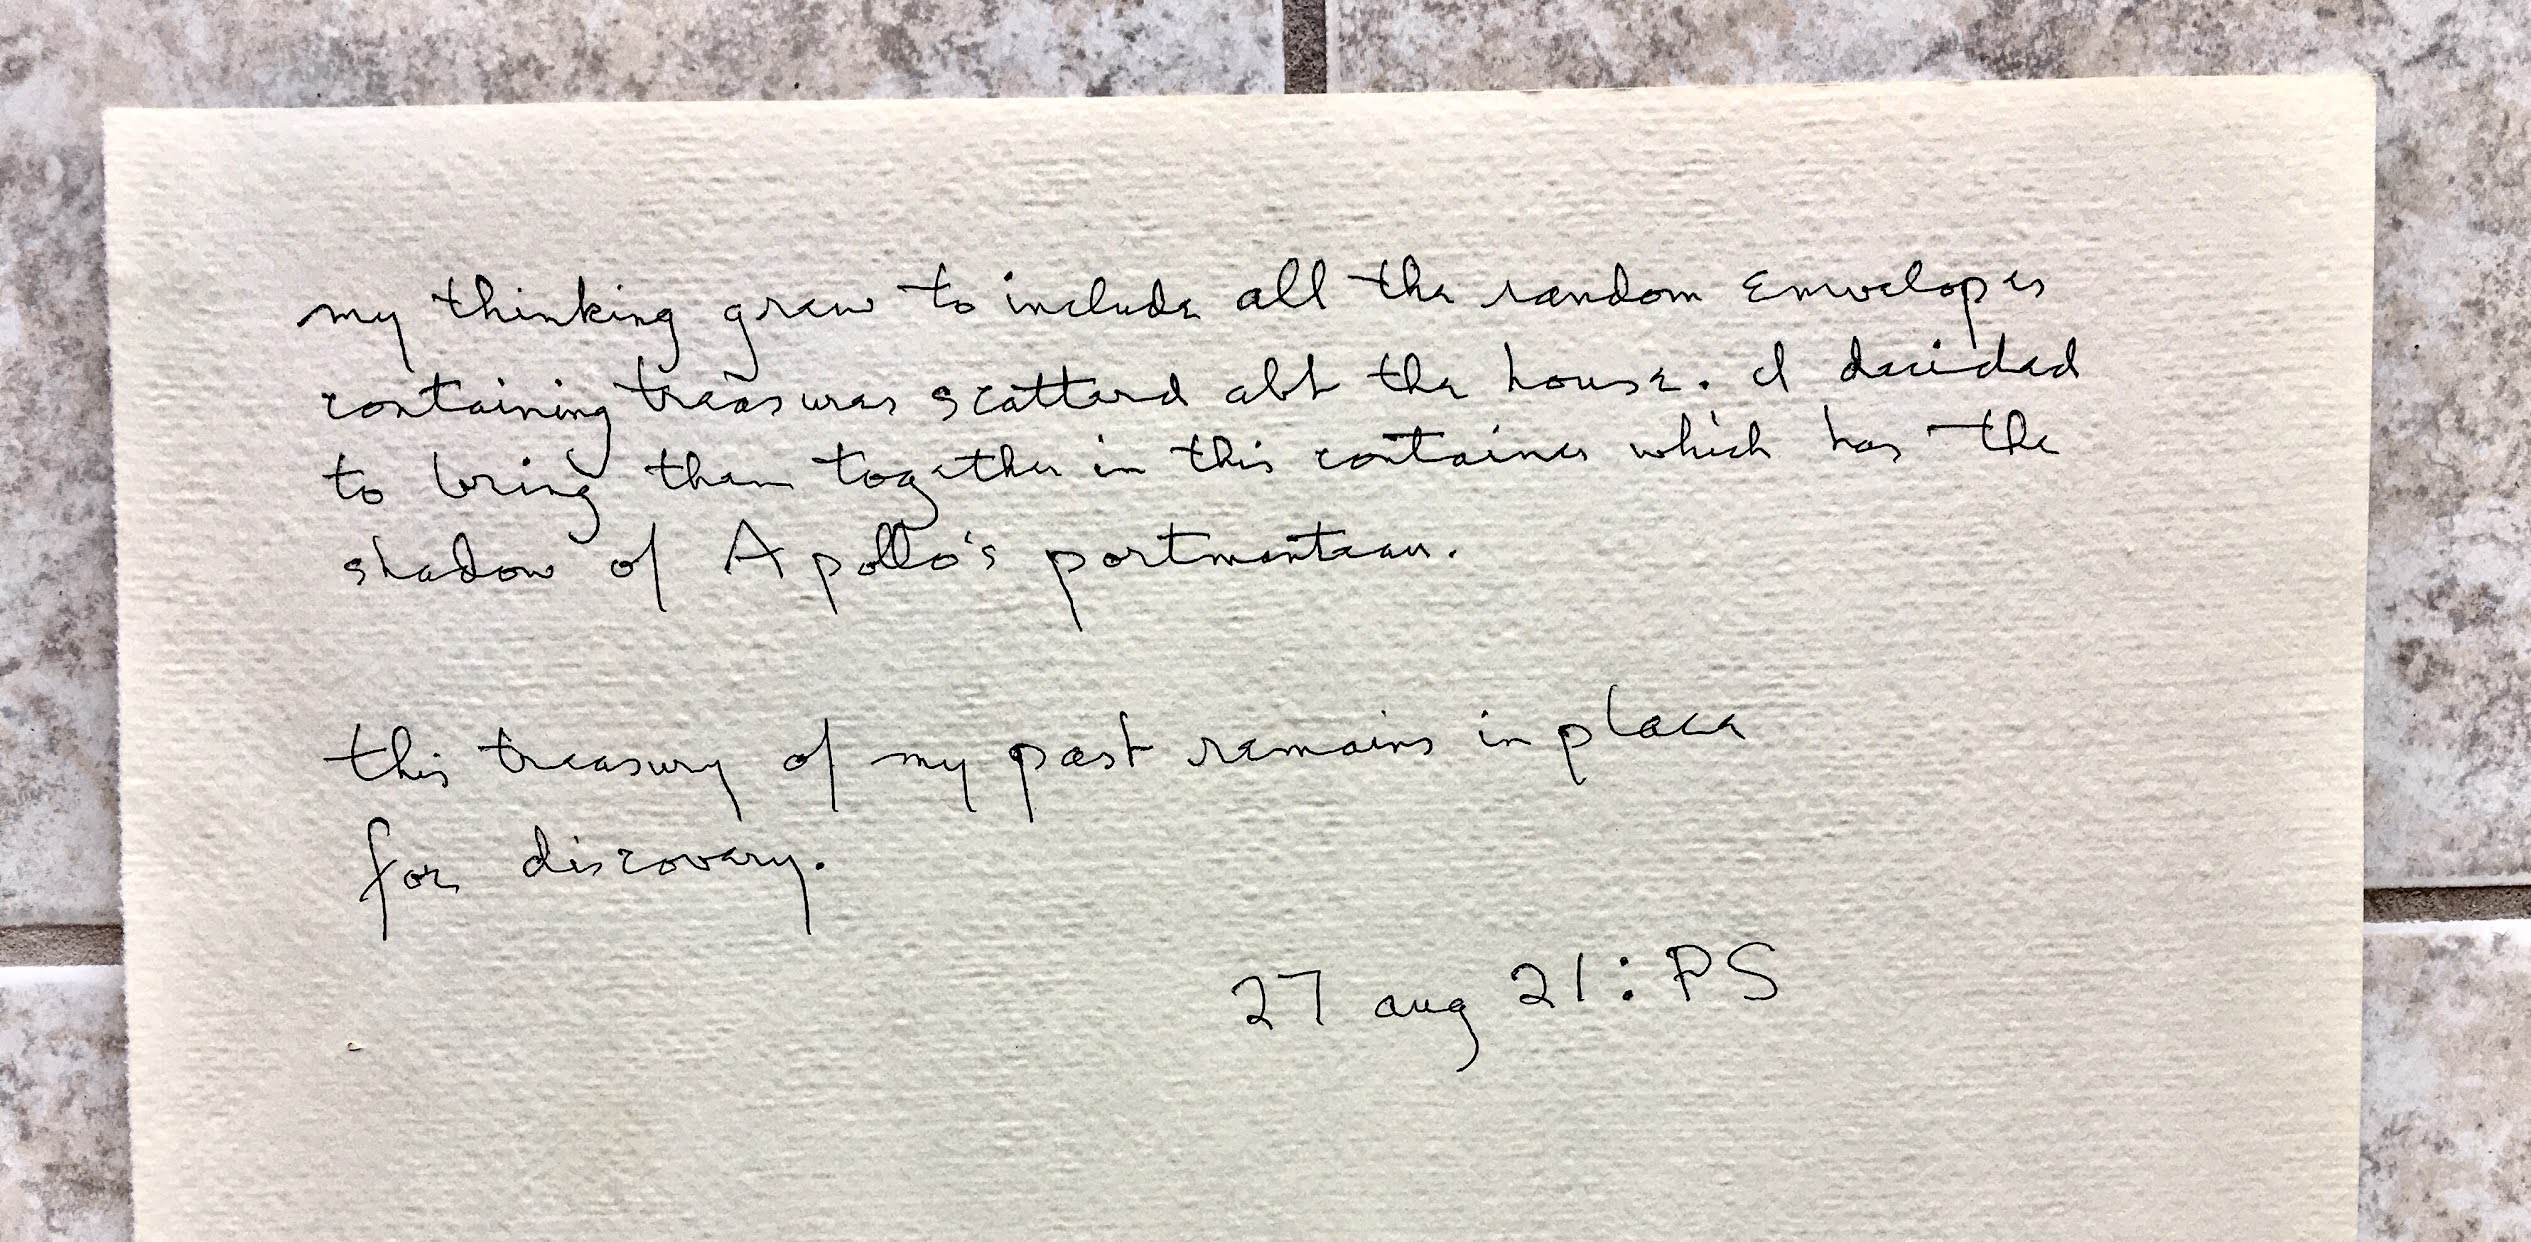 my thinking grew to include all the random envelopes
containing treasures scatterd abt the house. I decided
to bring them together in this container which has the
shadow of Apollo's portmanteau.
this treasury of my past remains in place
for discovery.
27 aug 21: PS